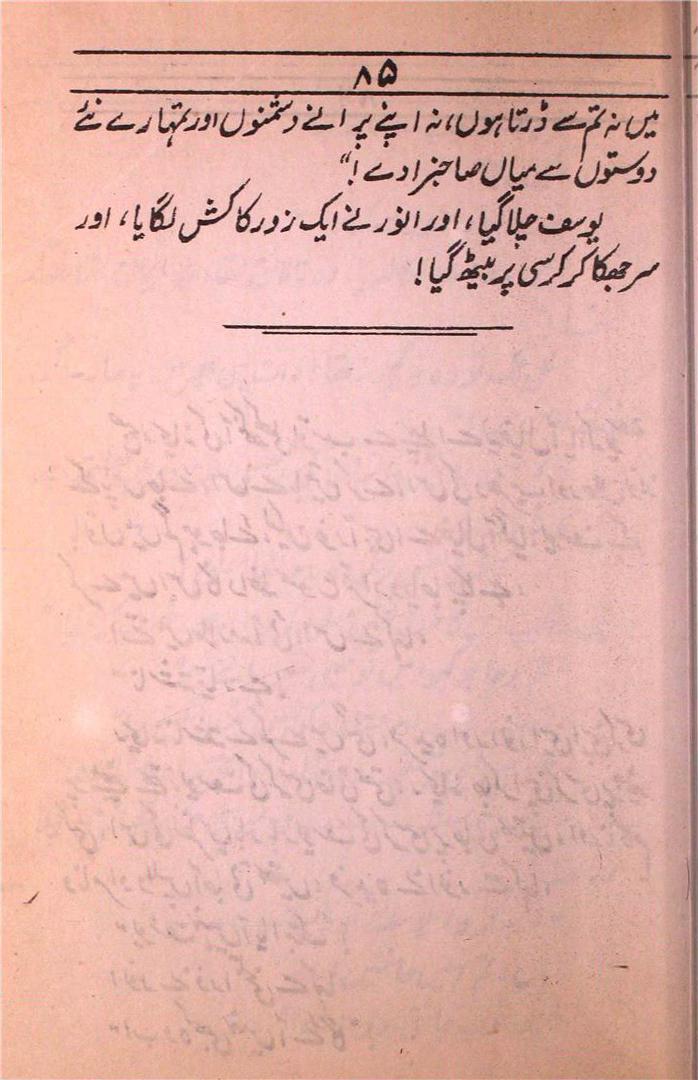 ۸۵
میں نہ تم سے ڈرتا ہوں، نہ اپنے پرانے دشمنوں اور تمہارے نئے
دوستوں سے میاں صاحبزادے!"
یوسف چلا گیا، اور انور نے ایک زور کا کش لگایا، اور
سر جھکا کر کرسی پر بیٹھ گیا!